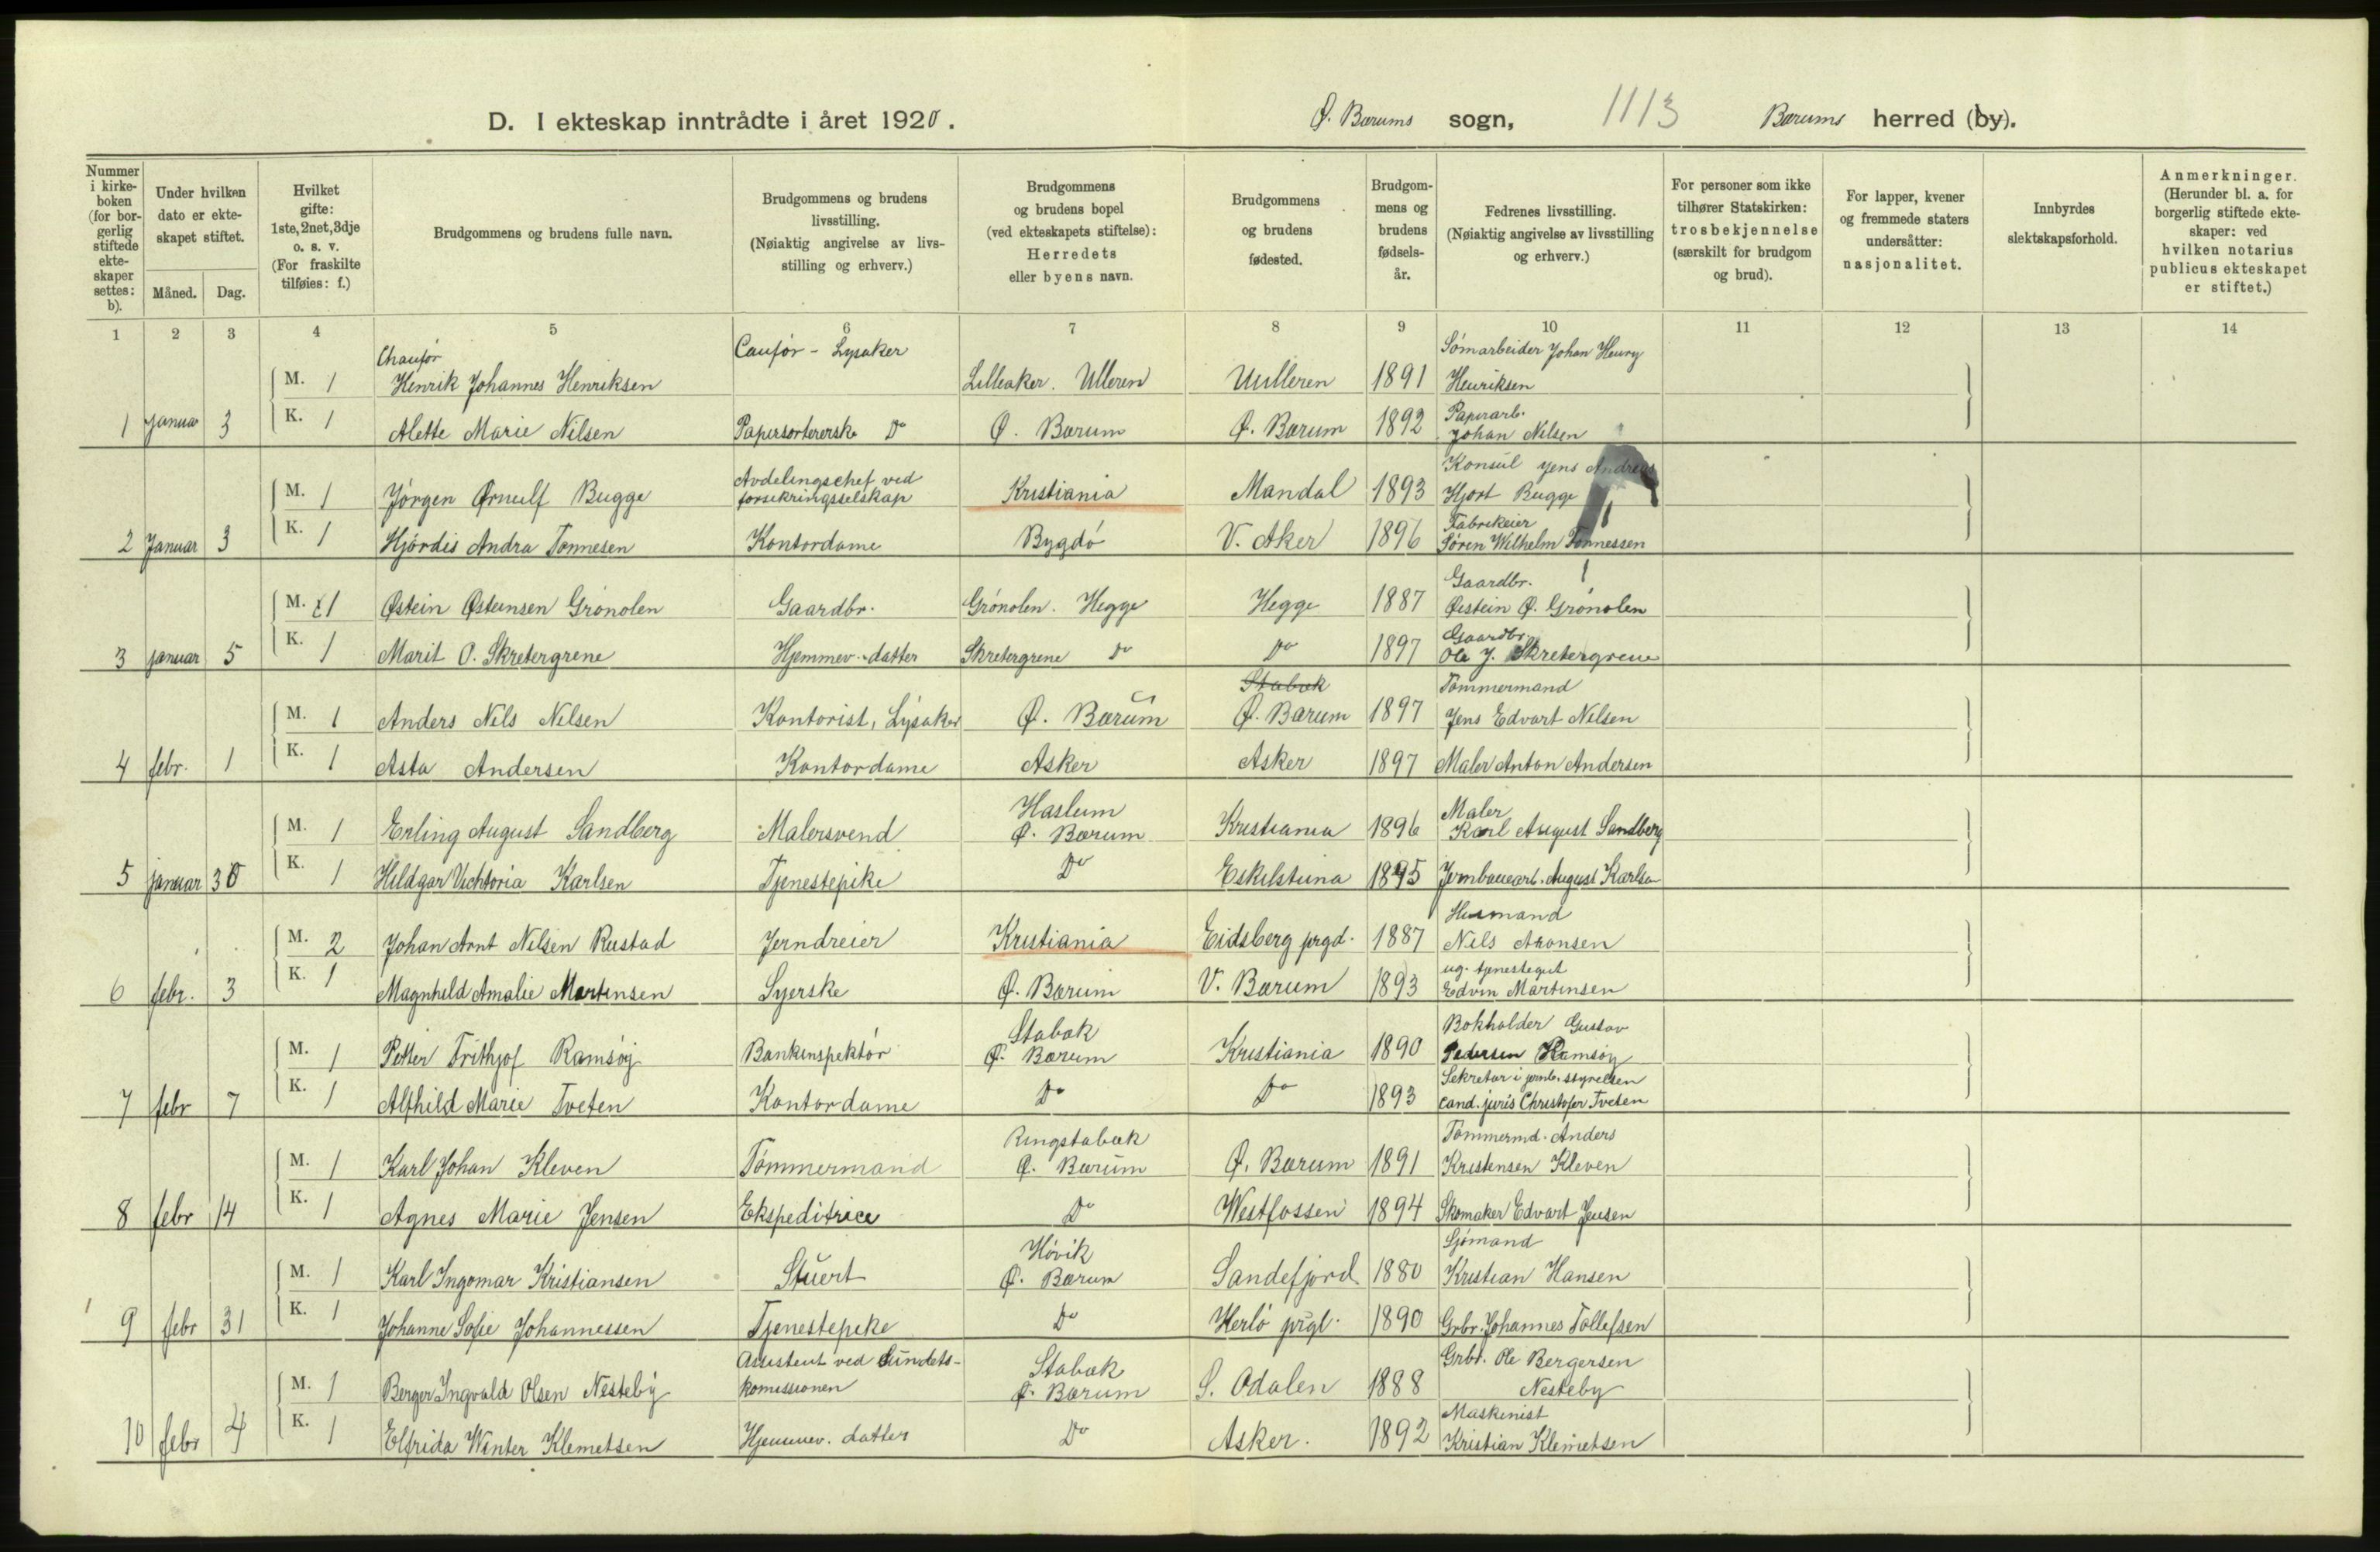 D. I ekteskap inntrådte i året 1920. Ø. Bærums sogn, 1113 Bærums herred (by).
Nummer i kirkeboken (for borgerlig stiftede ekteskaper settes: b).
Under hvilken dato er ekteskapet stiftet.
Måned. Dag.
Hvilket gifte: 1ste, 2net, 3dje o. s. v. (For fraskilte tilføies: f.)
Brudgommens og brudens fulle navn.
Brudgommens og brudens livsstilling. (Nøiaktig angivelse av livsstilling og erhverv.)
Brudgommens og brudens bopel (ved ekteskapets stiftelse): Herredets eller byens navn.
Brudgommens og brudens fødested.
Brudgommens og brudens fødselsår.
Fedrenes livsstilling. (Nøiaktig angivelse av livsstilling og erhverv.)
For personer som ikke tilhører Statskirken: trosbekjennelse (særskilt for brudgom og brud).
For lapper, kvener og fremmede staters undersåtter: nasjonalitet.
Innbyrdes slektskapsforhold.
Anmerkninger. (Herunder bl. a. for borgerlig stiftede ekteskaper: ved hvilken notarius publicus ekteskapet er stiftet.)
1 2 3 4 5 6 7 8 9 10 11 12 13 14
Chaufør Caufør - Lysaker Sømarbeider Johan Henry
M. 1 Henrik Johannes Henriksen Lilleaker. Ulleren Uulleren 1891 Henriksen
Paperarb.
1 Januar 3 K. 1 Alette Marie Nilsen Papersortererske Do Ø. Bærum Ø. Bærum 1892 Johan Nilsen
Avdelingschef ved Konsul Jens Andreas
M. 1 Jørgen Ørnulf Bugge forsekringsselskap Kristiania Mandal 1893 Hjort Bugge
Fabrikeier
2 Januar 3 K. 1 Hjørdis Andra Tønnesen Kontordame Bygdø V. Aker 1896 Søren Wilhelm Tønnessen
Gaardbr.
M. 1 Østein Østensen Grønolen Gaardbr. Grønolen. Hegge Hegge 1887 Østein Ø. Grønolen
Gaardbr
3 januar 5 K. 1 Marit O. Skretergrene Hjemmev. datter Skretergrene Do Do 1897 Ole J. Skretergrene
Stabæk Tømmermand
M. 1 Anders Nils Nilsen Kontorist, Lysaker Ø. Bærum Ø. Bærum 1897 Jens Edvart Nilsen
4 febr. 1 K. 1 Asta Andersen Kontordame Asker Asker 1897 Maler Anton Andersen
Haslum Maler
M. 1 Erling August Sandberg Malersvend Ø. Bærum Kristiania 1896 Karl August Sandberg
5 januar 30 K. 1 Hildgar Vichtoria Karlsen Tjenestepike Do Eskilstuna 1895 Jernbanearb. August Karlsen
Husmand
M. 2 Johan Arnt Nilsen Rustad Jerndreier Kristiania Eidsberg prgd. 1887 Nils Aronsen
ug. tjenestegut
6 febr. 3 K. 1 Magnhild Amalie Martinsen Syerske Ø. Bærum V. Bærum 1893 Edvin Martinsen
Stabæk Bokholder Gustav
M. 1 Petter Frithjof Ramsøy Bankinspektør Ø. Bærum Kristiania 1890 Pedersen Ramsøy
Sekretær i jernb. styrelsen
7 febr 7 K. 1 Alfhild Marie Tveten Kontordame Do Do 1893 cand. juris Christofer Tveten
Ringstabæk Tømmermd. Anders
M. 1 Karl Johan Kleven Tømmermand Ø. Bærum Ø. Bærum 1891 Kristensen Kleven
8 febr 14 K. 1 Agnes Marie Jensen Ekspeditrice Do Westfossen 1894 Skomaker Edvart Jensen
Høvik Sjømand
M. 1 Karl Ingomar Kristiansen Stuert Ø. Bærum Sandefjord 1880 Kristian Hansen
9 febr 31 K. 1 Johanne Sofie Johannessen Tjenestepike Do Herlø prgl. 1890 Grbr. Johannes Tollefsen
Assistent ved Sundets- Stabæk Grbr. Ole Bergersen
M. 1 Berger Ingvald Olsen Nesteby komissionen Ø. Bærum S. Odalen 1888 Nesteby
Maskinist
10 febr 4 K. 1 Elfrida Winter Klemetsen Hjemmev. datter Do Asker. 1892 Kristian Klemetsen